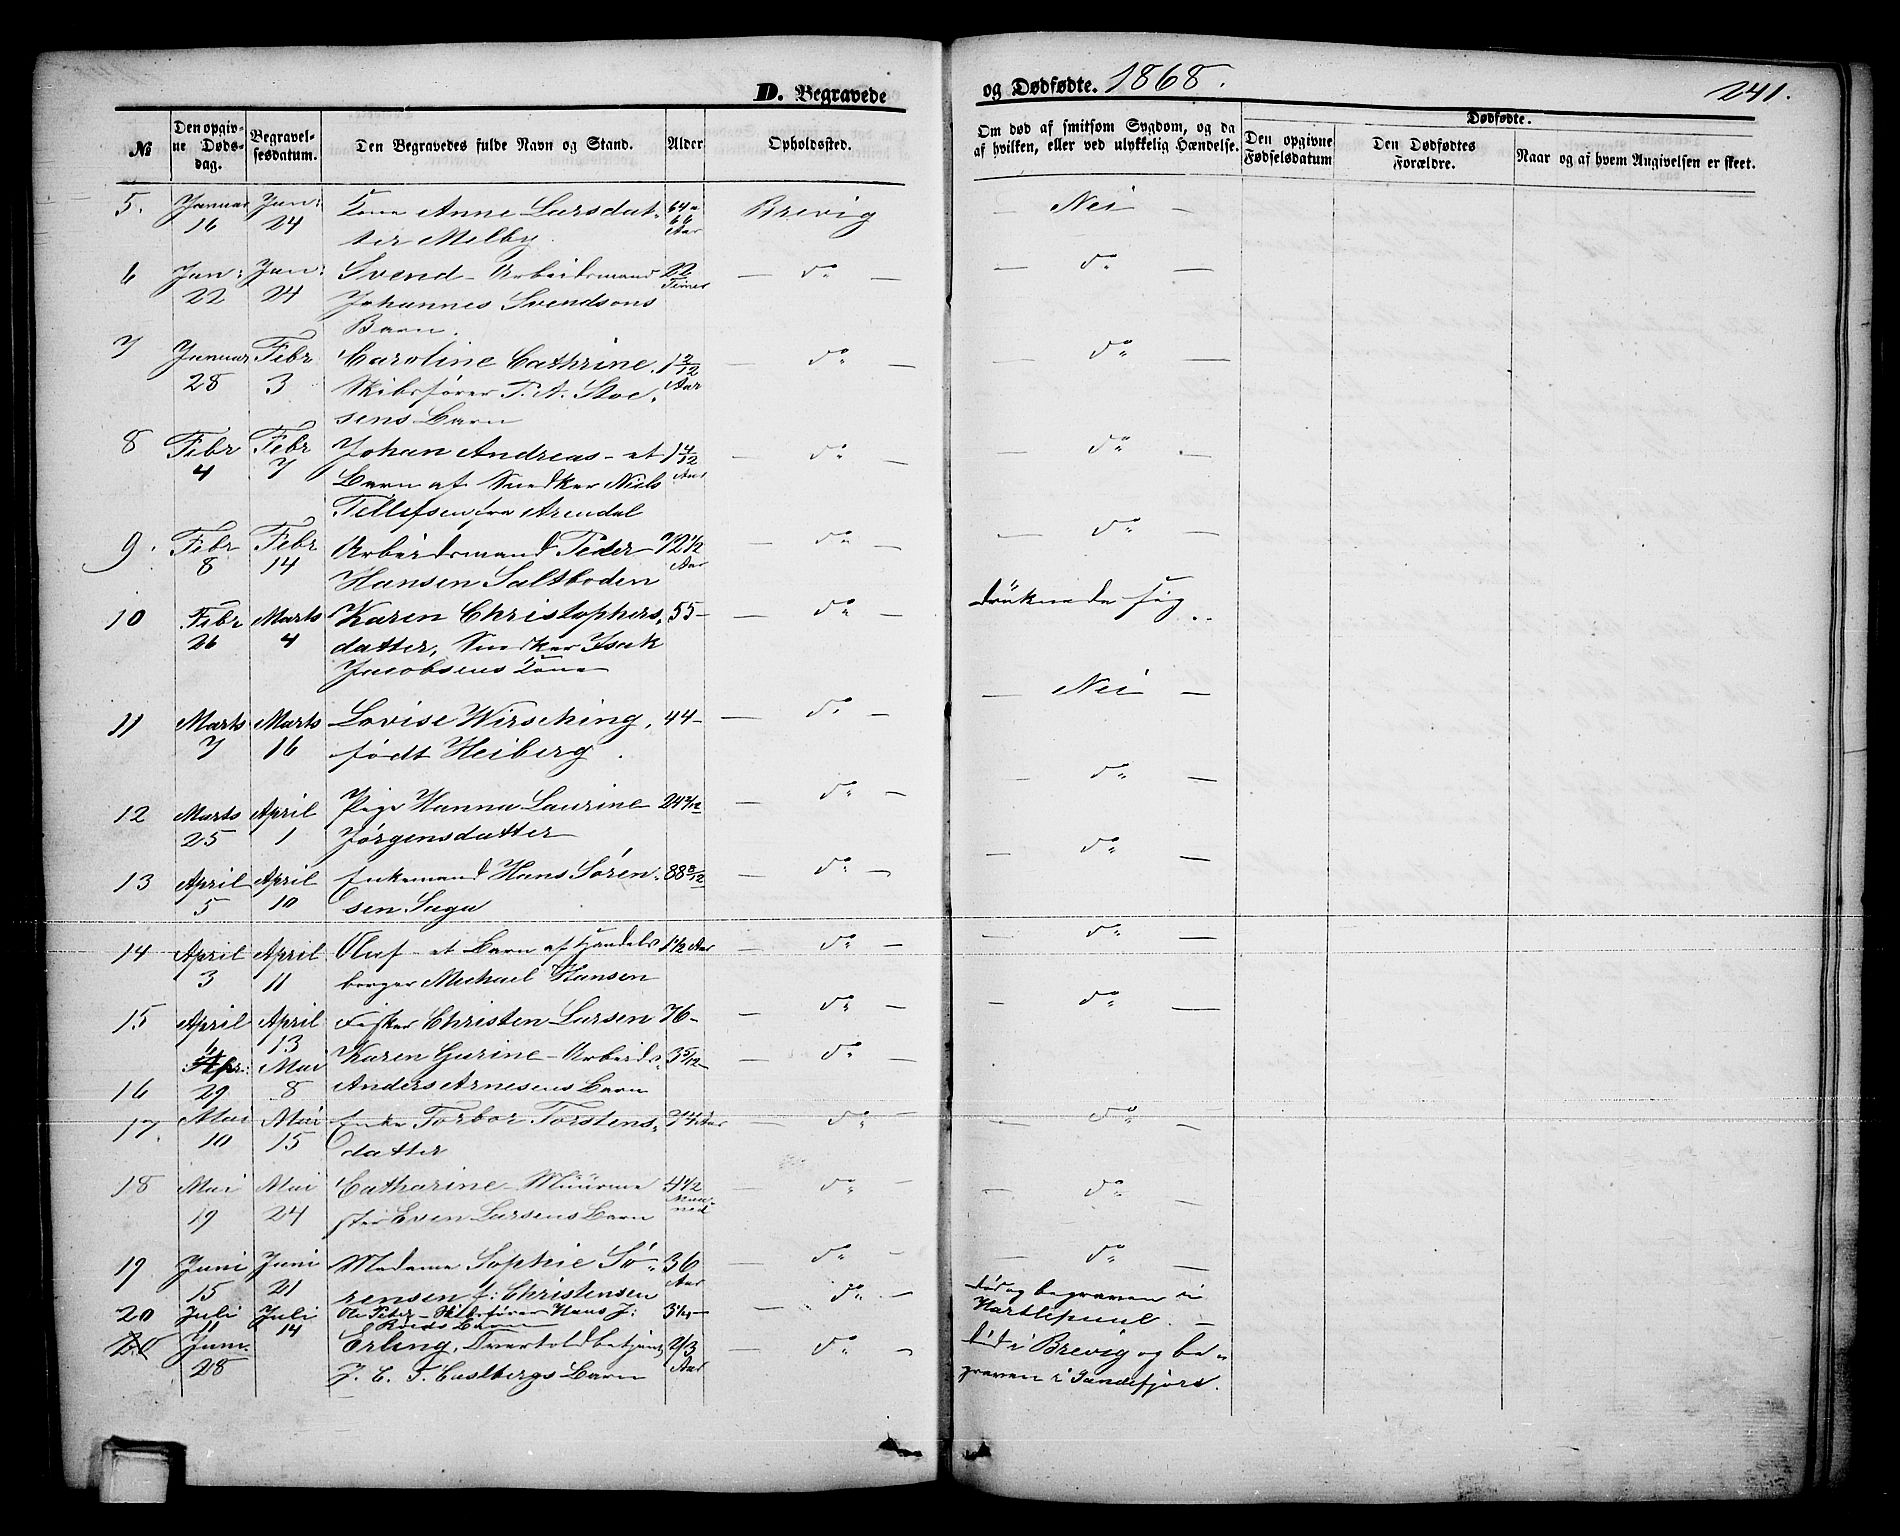 D. Begravede og Dødfødte. 1868. 241.
№ Den opgivne Dødsdag. Begravelsesdatum. Den Begravedes fulde Navn og Stand. Alder Opholdssted. Om død af smitsom Sygdom, og da af hvilken, eller ved ulykkelig Hændelse. Dødfødte.
Den opgivne Fødselsdatum Den Dødfødtes Forældre. Naar og af hvem Angivelsen er skeet.
5. Januar 16 Jan: 24 Kone Anne Larsdat-
ter Melby. 64 a 66 Aar Brevig — Nei —
6 Jan: 22 Jan: 24 Svend - Arbeidsmand
Johannes Svendsens
Barn. 22 Timer — do — — do —
7 Januar 28 Febr 3 Caroline Cathrine.
Skibsfører T. A. Stoe-
sens Barn 1 2/12 Aar — do — — do —
8 Febr 4 Febr 7 Johan Andreas - et
Barn af Snedker Niels
Tellefsen fra Arendal 1 4/12 Aar — do — — do —
9. Febr 8 Febr 14 Arbeidsmand Peder
Hansen Saltboden 72 1/2 Aar — do — — do —
10 Febr 26 Marts 4 Karen Christophers-
datter, Snedker Isak
Jacobsens Kone 55 — do — druknede sig
11 Marts 7 Marts 16 Lovise Wirsching,
født Heiberg. 44 — do — — Nei —
12 Marts 25 April 1 Pige Hanna Laurine
Jørgensdatter — do — — do —
13 April 5 April 10 Enkemand Hans Søren-
sen Saga 88 8/12 — do — — do —
14 April 3 April 11 Oluf - et Barn af Handels
borger Michael Hansen 1 1/2 Aar — do — — do —
15 April April 13 Fisker Christen Larsen 76 — do — — do —
16 Apr: 29 Mai 8 Karen Gurine - Arbeids-
Anders Arnesens Barn 3 5/12 — do —
17. Mai 10 Mai 15 Enke Torbor Torstens-
datter 74 Aar — do — — do —
18 Mai 19 Mai 24 Catharine - Muurme
ster Even Larsens Barn 4 1/2 Maaned — do — — do —
19 Juni 15 Juni 21 Madame Sophie Sø-
rensen f: Christensen 36 Aar — do — — do —
20 Juli 11 Juli 14 Ole Peter - Skibsfører Hans J:
Barn — do — død og begraven i
Hartlepool. —
Juni 28 Erling, Toertoldbetjent
J. C. F. Barn 2/3 Aar — do — død i Brevig og be-
graven i Sandefjord.